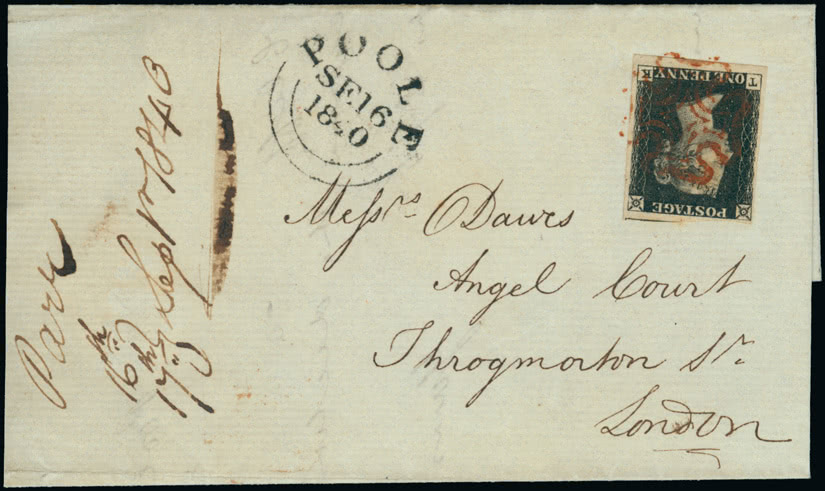 POOLE
SE 16
1840
ONE PENNY.
T K
POSTAGE
Messrs Dawes
Angel Court
Throgmorton St.
London
16th
17th Sepr 1840